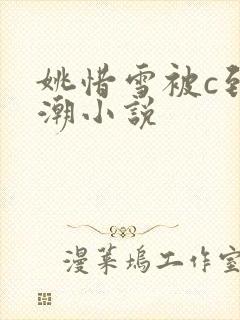 姚惜雪被c到
潮小说
漫莱坞工作室